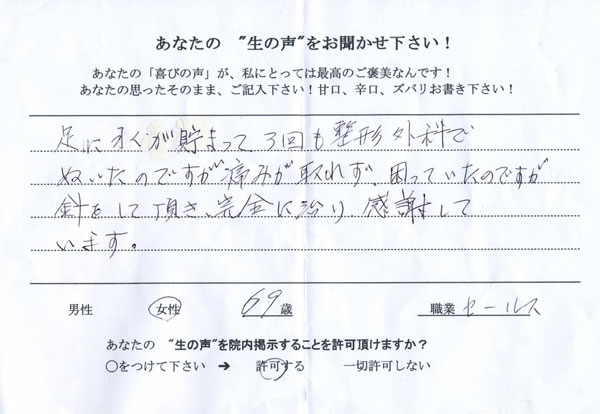 あなたの "生の声"をお聞かせ下さい！
あなたの「喜びの声」が、私にとっては最高のご褒美なんです！
あなたの思ったそのまま、ご記入下さい！甘口、辛口、ズバリお書き下さい！
足に水が貯まって 3回も整形外科で
ぬいたのですが痛みが取れず、困っていたのですが
針をして頂き、完全に治り 感謝して
います。
男性 女性 69歳 職業 セールス
あなたの "生の声"を院内掲示することを許可頂けますか？
○をつけて下さい ➔ 許可する 一切許可しない